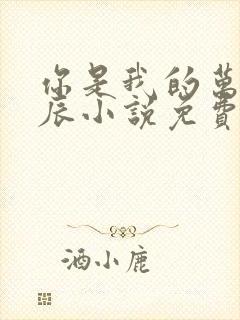 你是我的萬
辰小說免費
酒小鹿